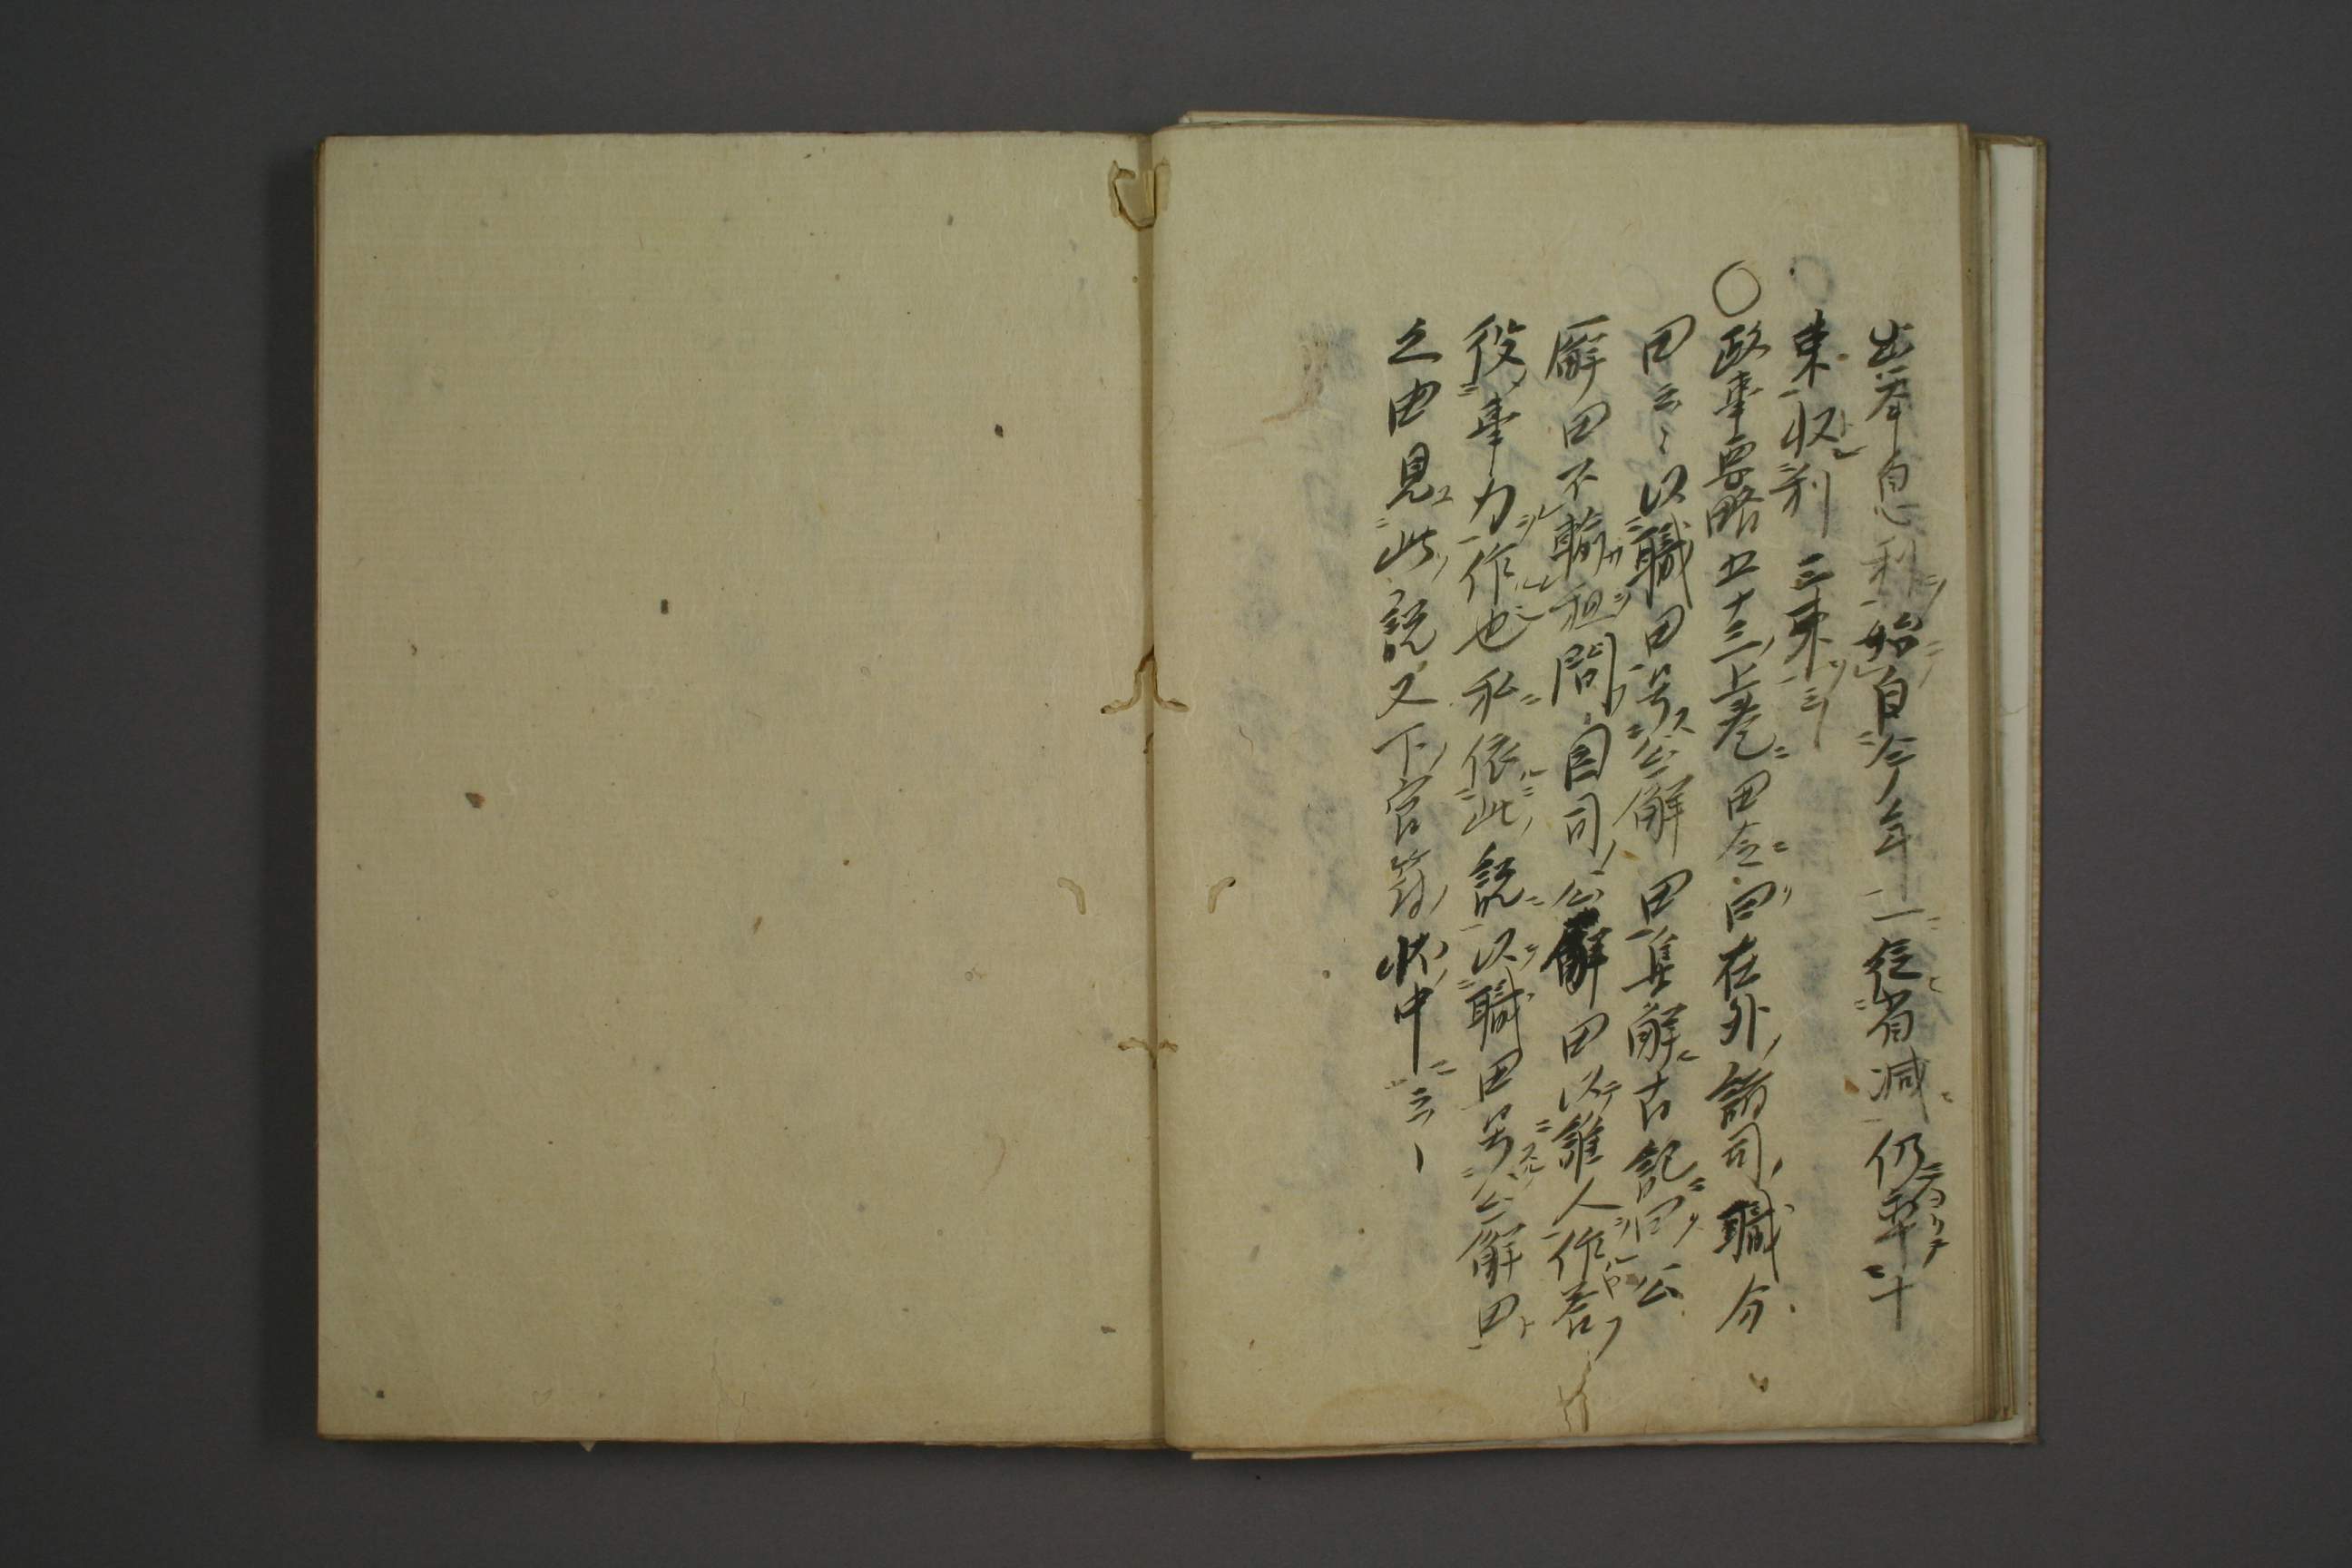 出挙息利始自今年一従省減仍率十
束収利三束云〻
○政事要略五十三上巻田令曰在外諸司職分
田云〻以職田号公廨田集解古記曰公
廨田不輸租問自司公廨田以誰人作答
役事力作也私依此説以職田号公廨田
之由見此説又下官符状中云〻